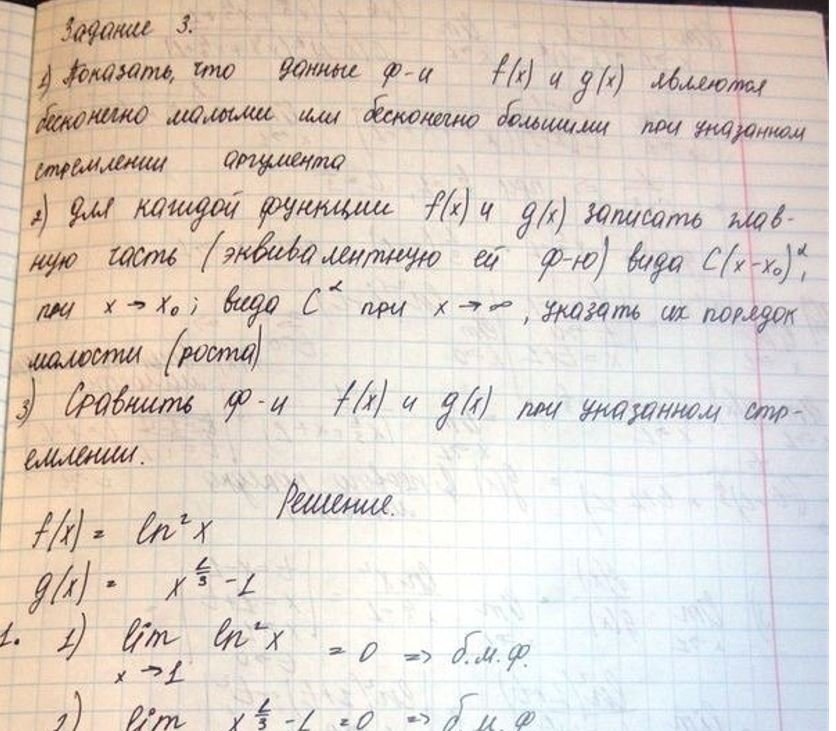 Задание 3.
1) Показать, что данные ф-и f(x) и g(x) являются
бесконечно малыми или бесконечно большими при указанном
стремлении аргумента
2) Для каждой функции f(x) и g(x) записать глав-
ную часть (эквивалентную ей ф-ю) вида C(x-x₀)^α,
при x → x₀; вида C^α при x → ∞, указать их порядок
малости (роста)
3) Сравнить ф-и f(x) и g(x) при указанном стр-
емлении.
Решение.
f(x) = ln²x
g(x) = x^(1/3) - 1
1. 1) lim ln²x = 0 => б.м.ф.
x → 1
2) lim x^(1/3) - 1 = 0 => б.м.ф